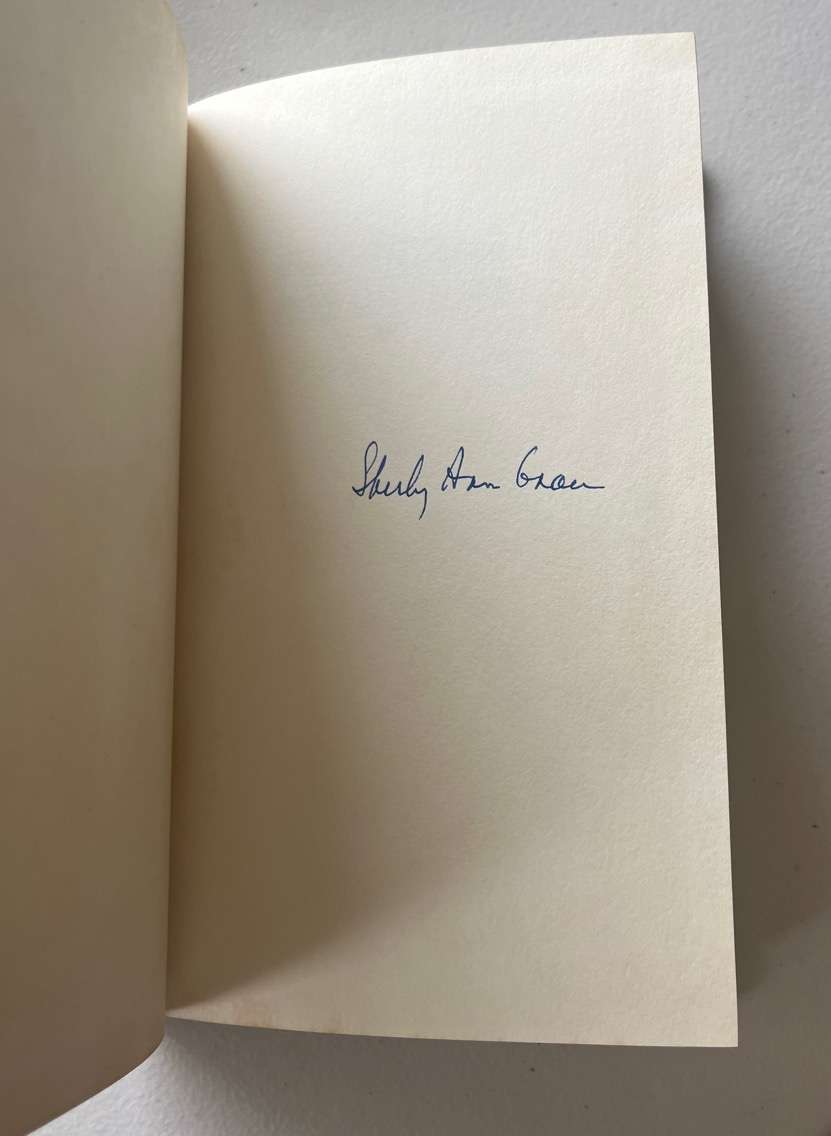 Shirley Ann Grau